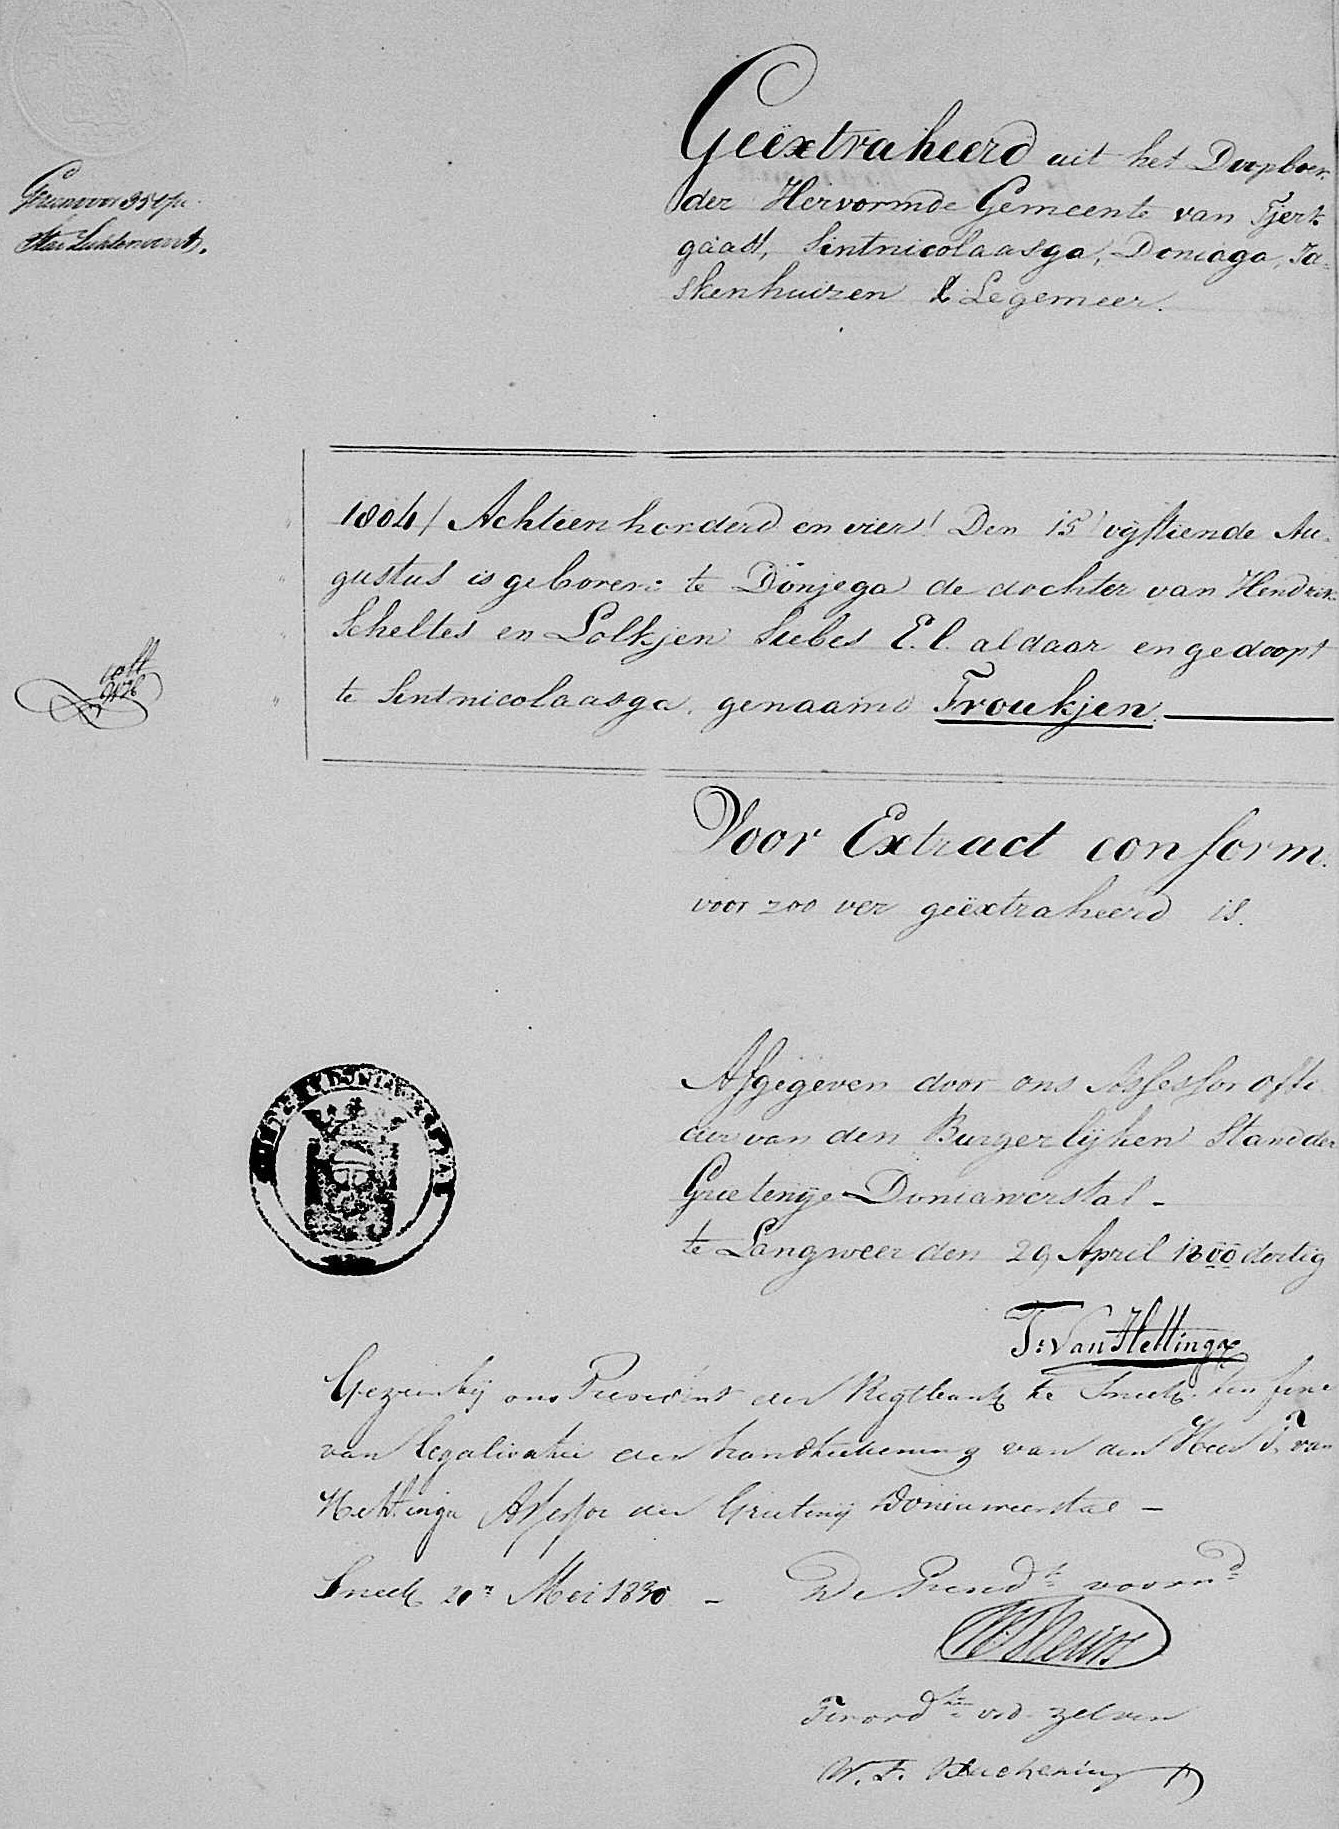 Geëxtraheerd uit het Doopboek
der Hervormde Gemeente van Tjerk-
gaast, Sintnicolaasga, Doniaga, Ta-
skenhuizen & Legemeer.
1804/ Achtien honderd en vier! Den 15 vijftiende Au-
gustus is geboren te Donjega de dochter van Hendrik
Scheltes en Lolkjen Siebes E. l. aldaar en gedoopt
te Sintnicolaasga, genaamd Froukjen.
Voor Extract conform.
voor zoo ver geëxtraheerd is.
Afgegeven door ons Assessor offi-
cier van den Burgerlijken Stand der
Grietenije Doniawerstal -
te Langweer den 29 April 1800 dertig
T: Van Hettinga
Gezien bij ons President der Regtbank te Sneek ten fine
van legalisatie der handteekening van den Heer T. van
Hettinga Assessor der Grietenij Doniawerstal -
Sneek 20 Mei 1830 - De Presid.t voorn.d
Ter ord.tie v.d. zelven